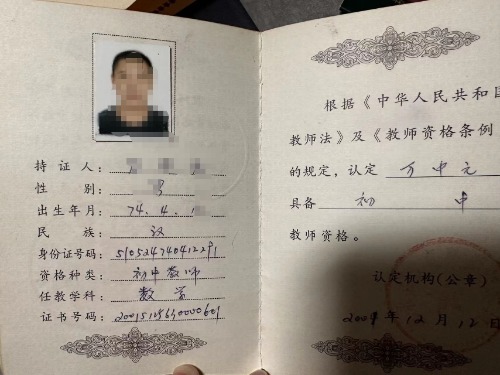 持 证 人：
性 别：男
出生年月：74.4.
民 族：汉
身份证号码：510524740412291
资格种类：初中教师
任教学科：数学
证书号码：
根据《中华人民共和国
教师法》及《教师资格条例
的规定，认定 万中元
具备 初 中
教师资格。
认定机构(公章)
2001年12月12日